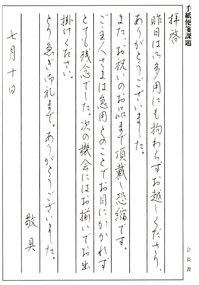 手紙便箋課題
拝啓
昨日はご多用にも拘わらずお越しくださり、
ありがとうございました。
またお祝いのお品まで頂戴し恐縮です。
ご主人さまは急用とのことでお目にかかれず
とても残念でした。次の機会にはお揃いでお出
掛けください。
とり急ぎ御礼まで。ありがとうございました。
敬具
七月十日
会長書